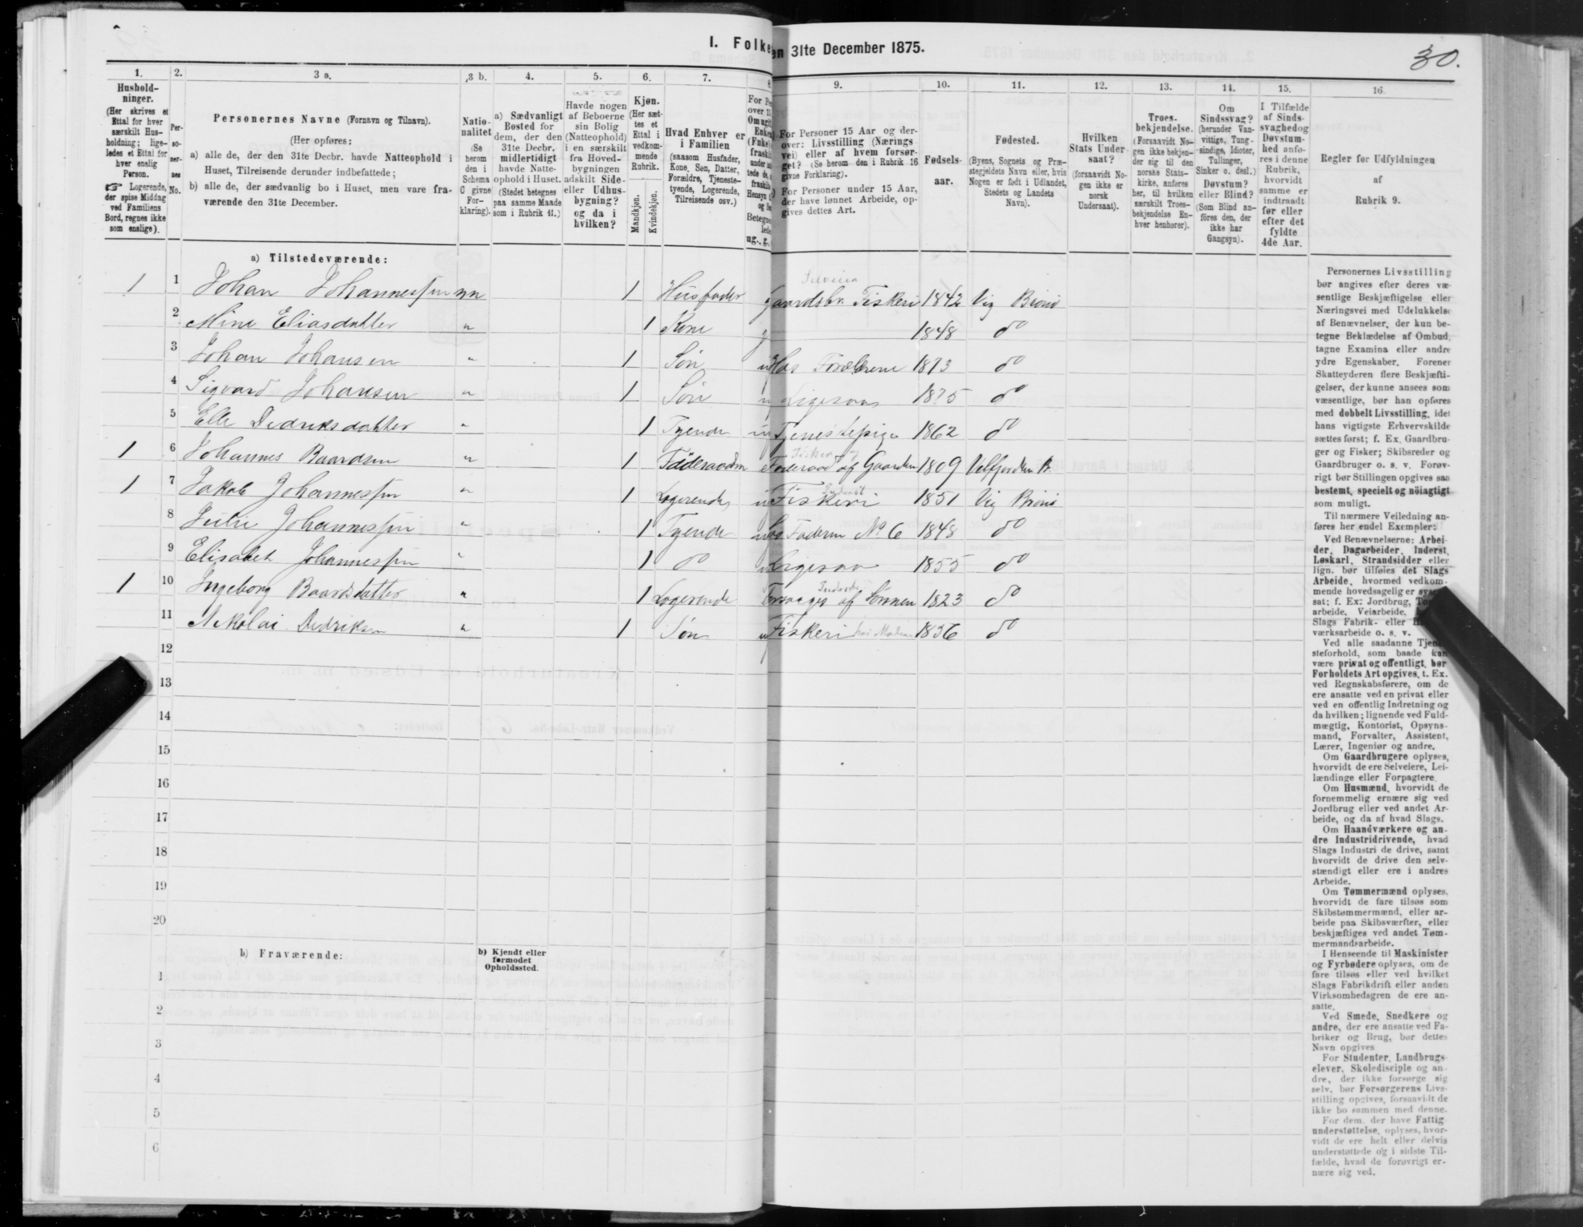 I. Folke
en 31te December 1875.
30.
1.
2.
3 a.
3 b.
4.
5.
6.
7.
8
9.
10.
11.
12.
13.
14.
15.
16
Hushold-
ninger.
(Her skrives et
Ettal for hver
særskilt Hus-
holdning; lige-
ledes et Ettal for
hver enslig
Person.
☞ Logerende,
der spise Middag
ved Familiens
Bord, regnes ikke
som enslige).
Per-
so-
ner-
nes
No.
Personernes Navne (Fornavn og Tilnavn).
(Her opføres:
a) alle de, der den 31te Decbr. havde Natteophold i
Huset, Tilreisende derunder indbefattede;
b) alle de, der sædvanlig bo i Huset, men vare fra-
værende den 31te December.
Natio-
nalitet
(Se
herom
den i
Schema
C givne
For-
klaring).
a) Sædvanligt
Bosted for
dem, der den
31te Decbr.
midlertidigt
havde Natte-
ophold i Huset.
(Stedet betegnes
paa samme Maade
som i Rubrik 11.)
Havde nogen
af Beboerne
sin Bolig
(Natteophold)
i en særskilt
fra Hoved-
bygningen
adskilt Side-
eller Udhus-
bygning?
og da i
hvilken?
Kjøn.
(Her sæt-
tes et
Ettal i
vedkom-
mende
Rubrik.
Mandkjøn.
Kvindekjøn.
Hvad Enhver er
i Familien
(saasom Husfader,
Kone, Søn, Datter,
Forældre, Tjeneste-
tyende, Logerende,
Tilreisende osv.)
For Personer 15 Aar og der-
over: Livsstilling (Nærings
vei) eller af hvem forsør-
get? (Se herom den i Rubrik 16
givne Forklaring).
For Personer under 15 Aar,
der have lønnet Arbeide, op-
gives dettes Art.
Fødsels-
aar.
Fødested.
(Byens, Sognets og Præ-
stegjeldets Navn eller, hvis
Nogen er født i Udlandet,
Stedets og Landets
Navn).
Hvilken
Stats Under-
saat?
(forsaavidt No-
gen ikke er
norsk
Undersaat).
Troes-
bekjendelse.
(Forsaavidt No-
gen ikke bekjen-
der sig til den
norske Stats-
kirke, anføres
her, til hvilken
særskilt Troes-
bekjendelse En-
hver henhører).
Om
Sindssvag?
(herunder Van-
vittige, Tung-
sindige, Idioter,
Tullinger,
Sinker o. desl.)
Døvstum?
eller Blind?
(Som Blind an-
føres den, der
ikke har
Gangsyn).
I Tilfælde
af Sinds-
svaghedog
Døvstum-
hed anfø-
res i denne
Rubrik,
hvorvidt
samme er
indtraadt
før eller
efter det
fyldte
4de Aar.
Regler før Udfyldningen
af
Rubrik 9.
a) Tilstedeværende:
1 1 Johan Johannessen nn 1 Husfader g Gaardsbr. Fiskeri 1842 Vig Brönö
2 Mine Eliasdatter " 1 Kone g 1848 do
3 Johan Johansen " 1 Søn u Hos Forældrene 1873 do
4 Sigvard Johansen " 1 Søn u Ligesaa 1875 do
5 Elle Dedriksdatter " 1 Tyende u Tjenestepige 1862 do
1 6 Johannes Baardsen " 1 Føderaadsm Føderaad af Gaarden 1809 Velfjorden B.
1 7 Jakob Johannessen " 1 Logerende u Fiskeri 1851 Vig Brönö
8 Julie Johannessen " 1 Tyende Faderen No 6 1848 do
9 Elisabet Johannessen " 1 do u Ligesaa 1855 do
1 10 Ingeborg Baardsdatter 1 Logerende Forsørges af Sønnen 1823 do
11 Nikolai Dedriksen " 1 Søn u Fiskeri 1856 do
12
13
14
15
16
17
18
19
20
b) Fraværende:
b) Kjendt eller
formodet
Opholdssted.
1
2
3
4
5
6
Personernes Livsstilling
bør angives efter deres væ-
sentlige Beskjæftigelse eller
Næringsvei med Udelukkelse
af Benævnelser, der kun be-
tegne Beklædelse af Ombud,
tagne Examina eller andre
ydre Egenskaber. Forener
Skatteyderen flere Beskjæfti-
gelser, der kunne ansees som
væsentlige, bør han opføres
med dobbelt Livsstilling, idet
hans vigtigste Erhvervskilde
sættes først; f. Ex. Gaardbru-
ger og Fisker; Skibsreder og
Gaardbruger o. s. v. Forøv-
rigt bør Stillingen opgives saa
bestemt, specielt og nöiagtigt
som muligt.
Til nærmere Veiledning an-
føres her endel Exempler:
Ved Benævnelserne: Arbei-
der, Dagarbeider, Inderst,
Løskarl, Strandsidder eller
lign. bør tilføies det Slags
Arbeide, hvormed vedkom-
mende hovedsagelig er
sat; f. Ex: Jordbrug,
arbeide, Veiarbeide,
Slags Fabrik- eller
værksarbeide o. s. v.
Ved alle saadanne Tjene-
steforhold, som baade kan
være privat og offentligt, bør
Forholdets Art opgives, t. Ex.
ved Regnskabsførere, om de
ere ansatte ved en privat eller
ved en offentlig Indretning og
da hvilken; lignende ved Fuld-
mægtig, Kontorist, Opsyns-
mand, Forvalter, Assistent,
Lærer, Ingeniør og andre.
Om Gaardbrugere oplyses,
hvorvidt de ere Selveiere, Lei-
lændinge eller Forpagtere.
Om Husmænd, hvorvidt de
fornemmelig ernære sig ved
Jordbrug eller ved andet Ar-
beide, og da af hvad Slags.
Om Haandværkere og an-
dre Industridrivende, hvad
Slags Industri de drive, samt
hvorvidt de drive den selv-
stændigt eller ere i andres
Arbeide.
Om Tømmermænd oplyses,
hvorvidt de fare tilsøs som
Skibstømmermænd, eller ar-
beide paa Skibsværfter, eller
beskjæftiges ved andet Tøm-
mermandsarbeide.
I Henseende til Maskinister
og Fyrbødere oplyses, om de
fare tilsøs eller ved hvilket
Slags Fabrikdrift eller anden
Virksomhedsgren de ere an-
satte.
Ved Smede, Snedkere og
andre, der ere ansatte ved Fa-
briker og Brug, bør dettes
Navn opgives.
For Studenter, Landbrugs-
elever, Skoledisciple og an-
dre, der ikke forsørge sig
selv, bør Forsørgerens Livs-
stilling opgives, forsaavidt de
ikke bo sammen med denne.
For dem, der have Fattig
understøttelse, oplyses, hvor-
vidt de ere helt eller delvis
understøttede og i sidste Til-
fælde, hvad de forøvrigt er-
nære sig ved.